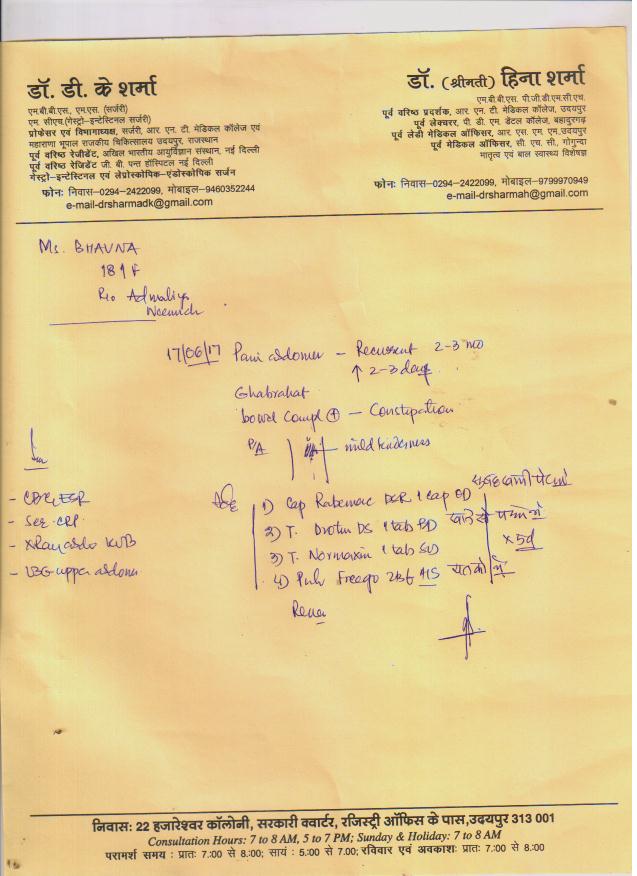 डॉ. डी. के शर्मा
एम.बी.बी.एस., एम.एस. (सर्जरी)
एम. सीएच.(गेस्ट्रो-इन्टेस्टिनल सर्जरी)
प्रोफेसर एवं विभागाध्यक्ष, सर्जरी, आर. एन. टी. मेडिकल कॉलेज एवं
महाराणा भूपाल राजकीय चिकित्सालय उदयपुर, राजस्थान
पूर्व वरिष्ठ रेजीडेंट, अखिल भारतीय आयुर्विज्ञान संस्थान, नई दिल्ली
पूर्व वरिष्ठ रेजिडेंट जी. बी. पन्त हॉस्पिटल नई दिल्ली
गेस्ट्रो-इन्टेस्टिनल एवं लेप्रोस्कोपिक-एंडोस्कोपिक सर्जन
फोनः निवास-0294-2422099, मोबाइल-9460352244
e-mail-drsharmadk@gmail.com
डॉ. (श्रीमती) हिना शर्मा
एम.बी.बी.एस. पी.जी.डी.एम.सी.एच.
पूर्व वरिष्ठ प्रदर्शक, आर. एन. टी. मेडिकल कॉलेज, उदयपुर
पूर्व लेक्चरर, पी. डी. एम. डेंटल कॉलेज, बहादुरगढ़
पूर्व लेडी मेडिकल ऑफिसर, आर. एस. एम. एम.उदयपुर
पूर्व मेडिकल ऑफिसर, सी. एच. सी., गोगुन्दा
मातृत्व एवं बाल स्वास्थ्य विशेषज्ञ
फोनः निवास-0294-2422099, मोबाइल-9799970949
e-mail-drsharmah@gmail.com
Ms. BHAVNA
18 y F
R/o Admaliya
Neemuch
17/06/17 Pain abdomen - Recurrent 2-3 mo
↑ 2-3 days
Ghabrahat
bowel Compl ⊕ - Constipation
P/A mild tenderness
- CBC, ESR
- Ser. CRP
- X Ray abdo KUB
- USG upper abdomen
Adv
1) Cap Rabemac DSR 1 cap OD सुबह खाली पेट में
2) T. Drotin DS 1 tab BD खाने से पहले में
3) T. Normaxin 1 tab x 5d
4) Pulv Freego 2tsf HS रात को में
Review
निवासः 22 हजारेश्वर कॉलोनी, सरकारी क्वार्टर, रजिस्ट्री ऑफिस के पास,उदयपुर 313 001
Consultation Hours: 7 to 8 AM, 5 to 7 PM; Sunday & Holiday: 7 to 8 AM
परामर्श समय : प्रातः 7:00 से 8:00; सायं : 5:00 से 7.00; रविवार एवं अवकाशः प्रातः 7:00 से 8:00